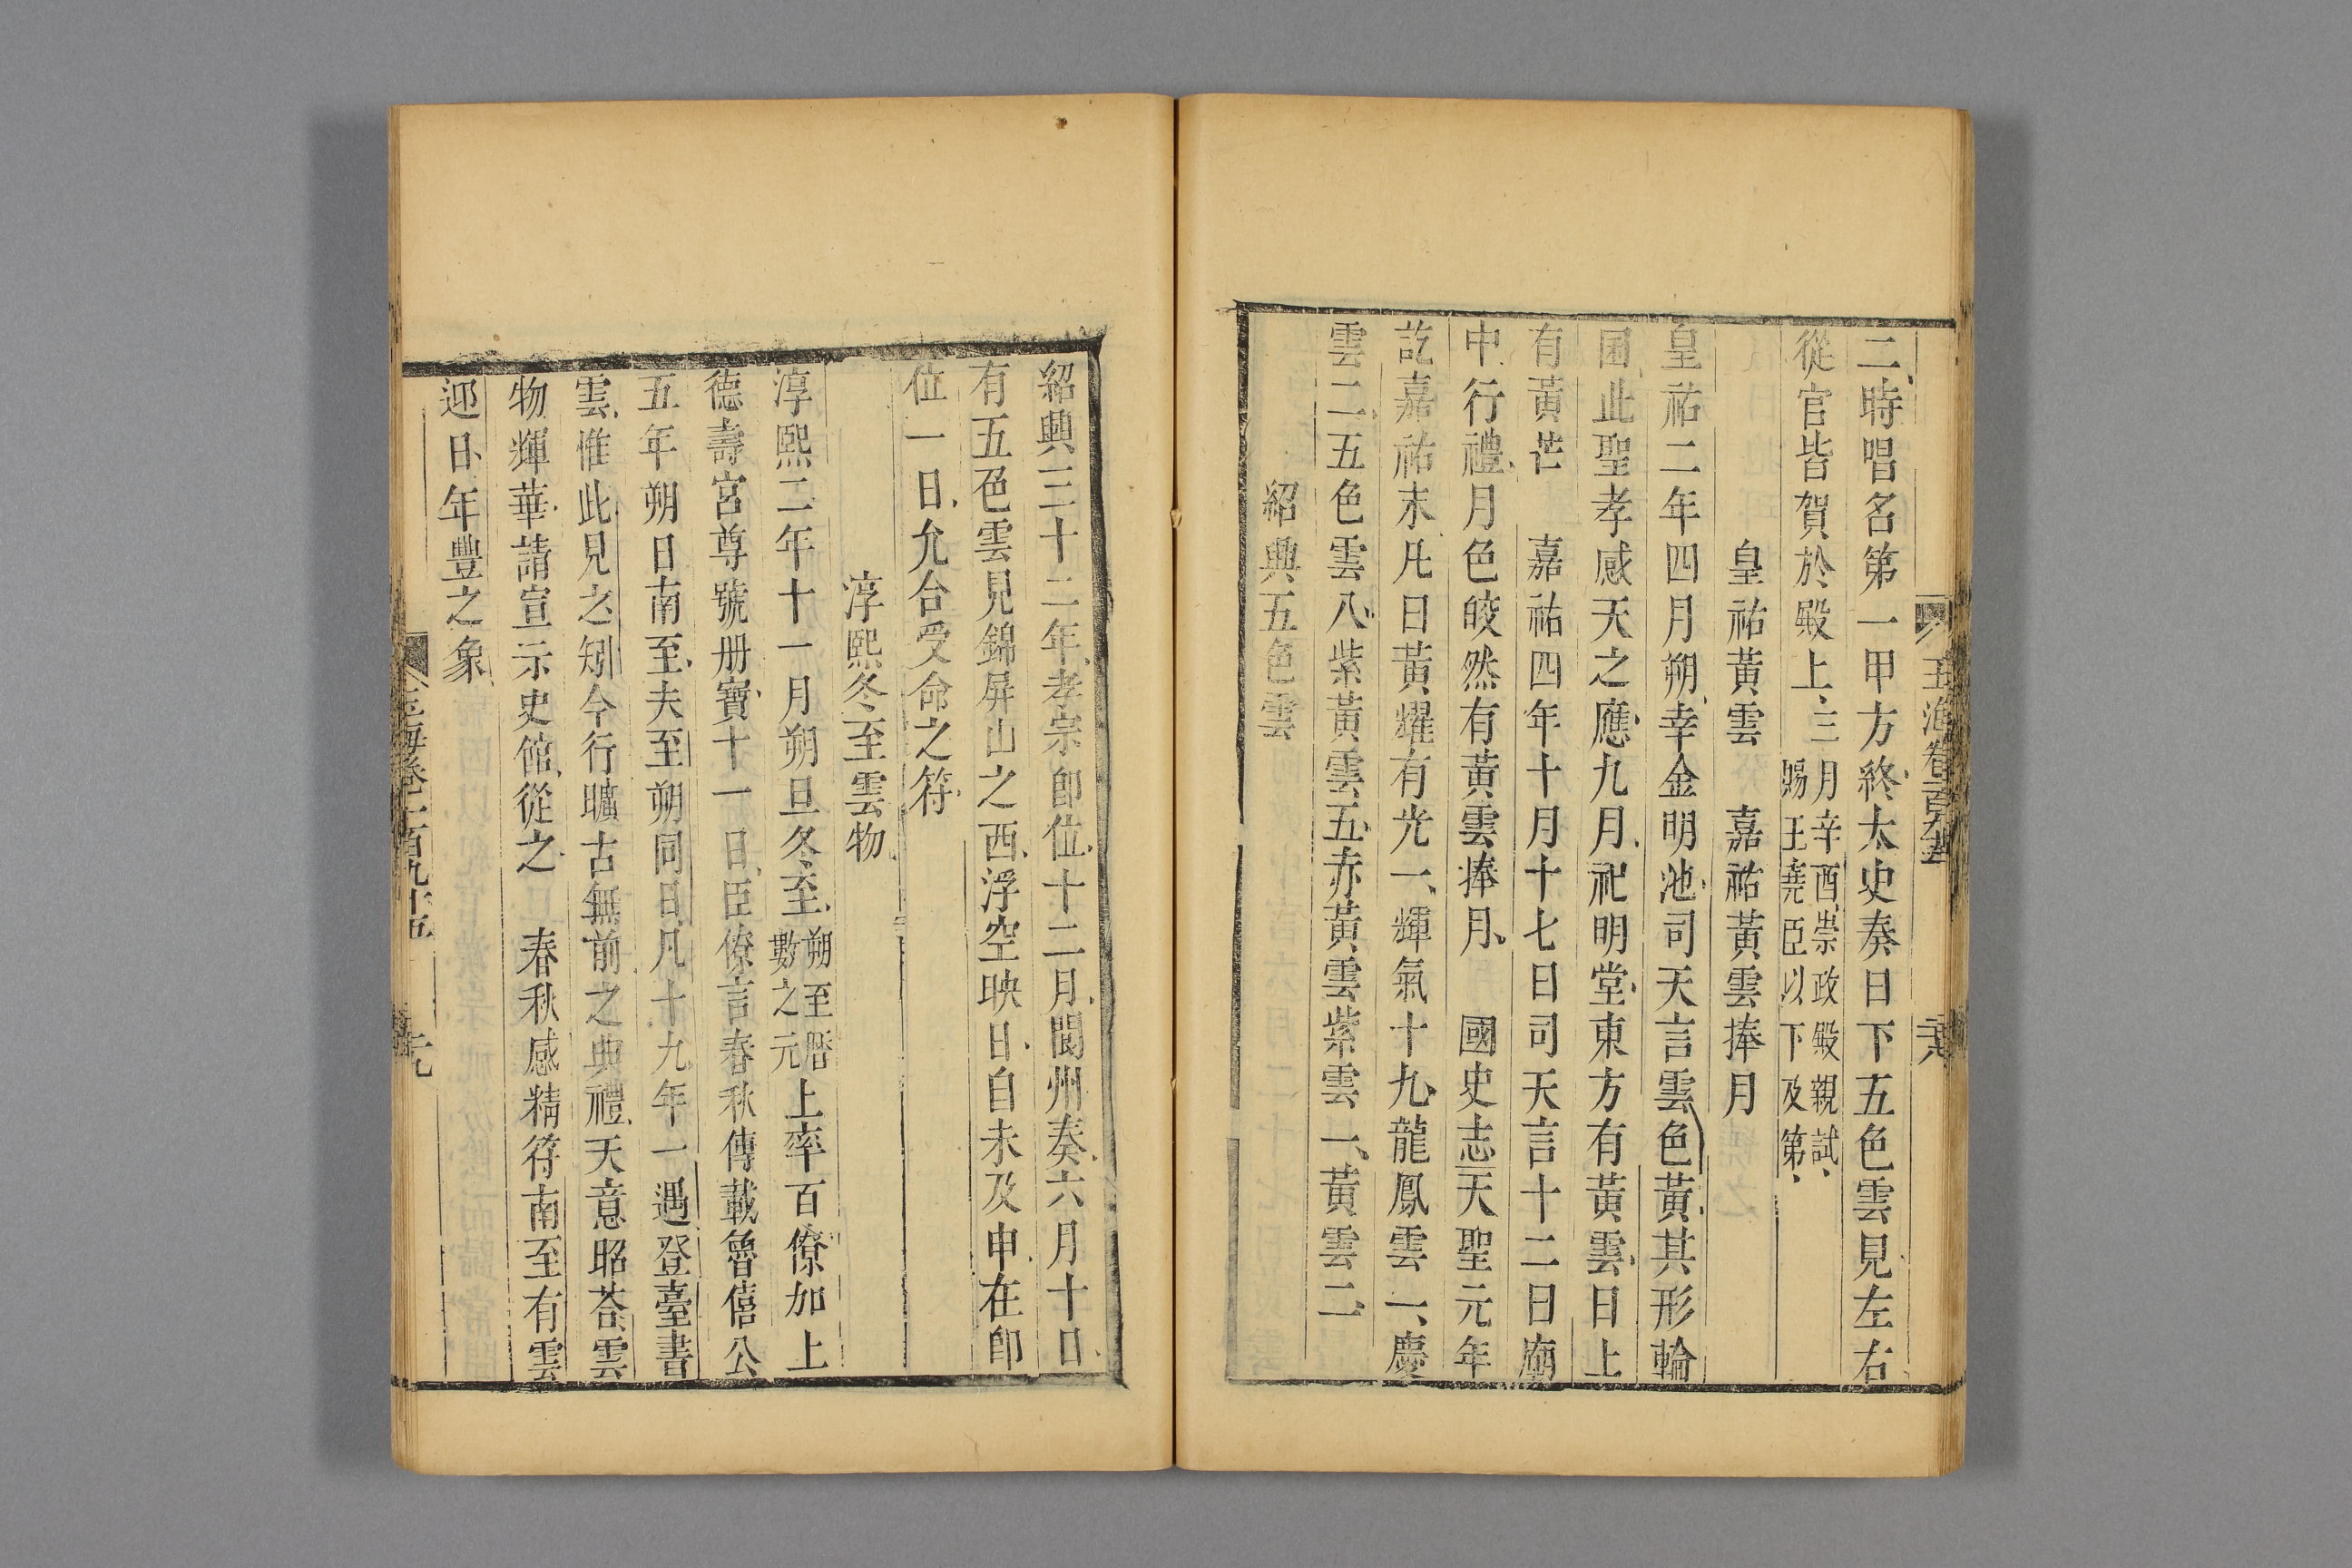 玉海卷一百九十五
二時唱名第一甲方終太史奏日下五色雲見左右
從官皆賀於殿上三月辛酉崇政殿親試賜王堯臣以下及第
皇祐黃雲　嘉祐黃雲捧月
皇祐二年四月朔幸金明池司天言雲色黃其形輪
囷此聖孝感天之應九月祀明堂東方有黃雲日上
有黃芒　嘉祐四年十月十七日司天言十二日廟
中行禮月色皎然有黃雲捧月　國史志天聖元年
訖嘉祐末凡日黃耀有光一輝氣十九龍鳳雲一慶
雲二五色雲八紫黃雲五赤黃雲紫雲一黃雲二
紹興五色雲
紹興三十二年孝宗卽位十二月閬州奏六月十日
有五色雲見錦屏山之西浮空映日自未及申在卽
位一日允合受命之符
淳熙冬至雲物
淳熙二年十一月朔旦冬至朔至曆數之元上率百僚加上
德壽宮尊號册寶十一日臣僚言春秋傳載魯僖公
五年朔日南至夫至朔同日凡十九年一遇登臺書
雲惟此見之矧今行曠古無前之典禮天意昭荅雲
物輝華請宣示史館從之　春秋感精符南至有雲
迎日年豐之象
玉海卷一百九十五
元